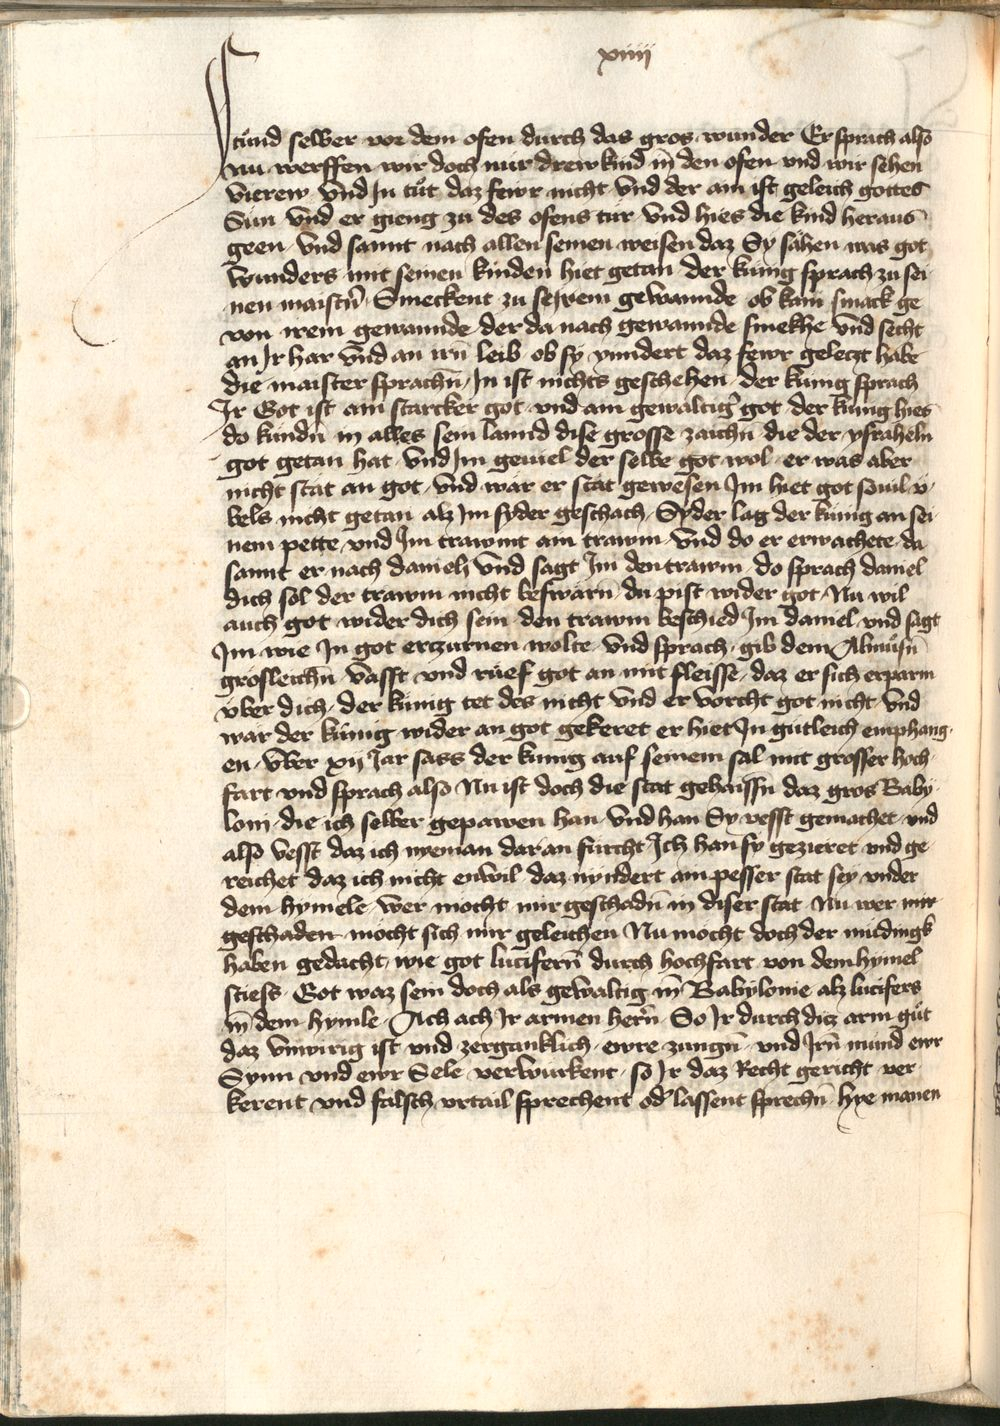 xiiij
Stuͦnd selber vor dem ofen durch das gros wunder Er sprach also
Nu werffen wir doch nur drew kind in den ofen vnd wir sehen
vierew Vnd In tuͦt daz fewr nicht Vnd der ain ist geleich gottes
Sun Vnd er gieng zu des ofens tür Vnd hies die kind heraus
geen Vnd sannt nach allen seinen weisen daz Sy sähen was got
Wunders mit seinen kinden hiet getan der künig sprach zu sei
nen maistern̄ Smeckent zu irem gewannde ob kain smack ge
von irem gewannde der da nach gewannde smekhe Vnd secht
an Ir har Vnd an irn̄ leib ob sy yundert daz fewr geletzt habe
die maister sprachn̄ In ist nichts geschehen der künig sprach
Ir Got ist ain starcker got vnd ain gewaltig' got der künig hies
do kündn̄ in alles sein lannd dise grosse zaichn̄ die der ysraheln
got getan hat Vnd Im geuiel der selbe got wol er was aber
nicht stät an got Vnd wär er stät gewesen Im hiet got souil v̈
bels nicht getan alz Im syder geschach Syder lag der künig an sei
nem pette vnd Im trawmt ain trawm Vnd do er erwachete da
sannt er nach danieln Vnd sagt Im den trawm do sprach daniel
dich sol der trawm nicht beswärn̄ du pist wider got Nu wil
auch got wider dich sein den trawm beschied Im daniel vnd sagt
Im wie In got erzurnen wolte Vnd sprach gib dem Almuͦsn̄
grosleichn̄ Vasst vnd rüef got an mit fleisse daz er sich erparm
v̈ber dich der künig tet des nicht Vnd er vorcht got nicht Vnd
wär der künig wider an got gekeret er hiet In gütleich emphang
en Vber xij Jar sass der künig auf seinem sal mit grosser hoch
fart vnd sprach also Nu ist doch die stat gehaissn̄ daz gros Baby
loni die ich selber gepawen han Vnd han Sy vesst gemachet vnd
also vesst daz ich nyeman daran fürcht Ich han sy gezieret vnd ge
reichet daz ich nicht enwil daz nyndert ain pesser stat sey vnder
dem hymele wer mocht mir geschadn̄ in diser stat Nu wer mir
geschaden mocht sich mir geleichen Nu mocht doch der müdingk
haben gedacht wie got lucifern̄ durch hochfart von dem hymel
stiess Got waz sein doch als gewaltig in Babylonie alz lucifers
in dem hymle Ach ach Ir armen hern̄ So Ir durch ditz arm guͦt
daz vnwirig ist vnd zerganklich ewre zungn̄ vnd Irn̄ mund ewr
Synn vnd ewr Sele verwurkent so Ir daz Recht gericht ver
kerent vnd fälsch vrtail sprechent od' lassent sprechn̄ hye manen